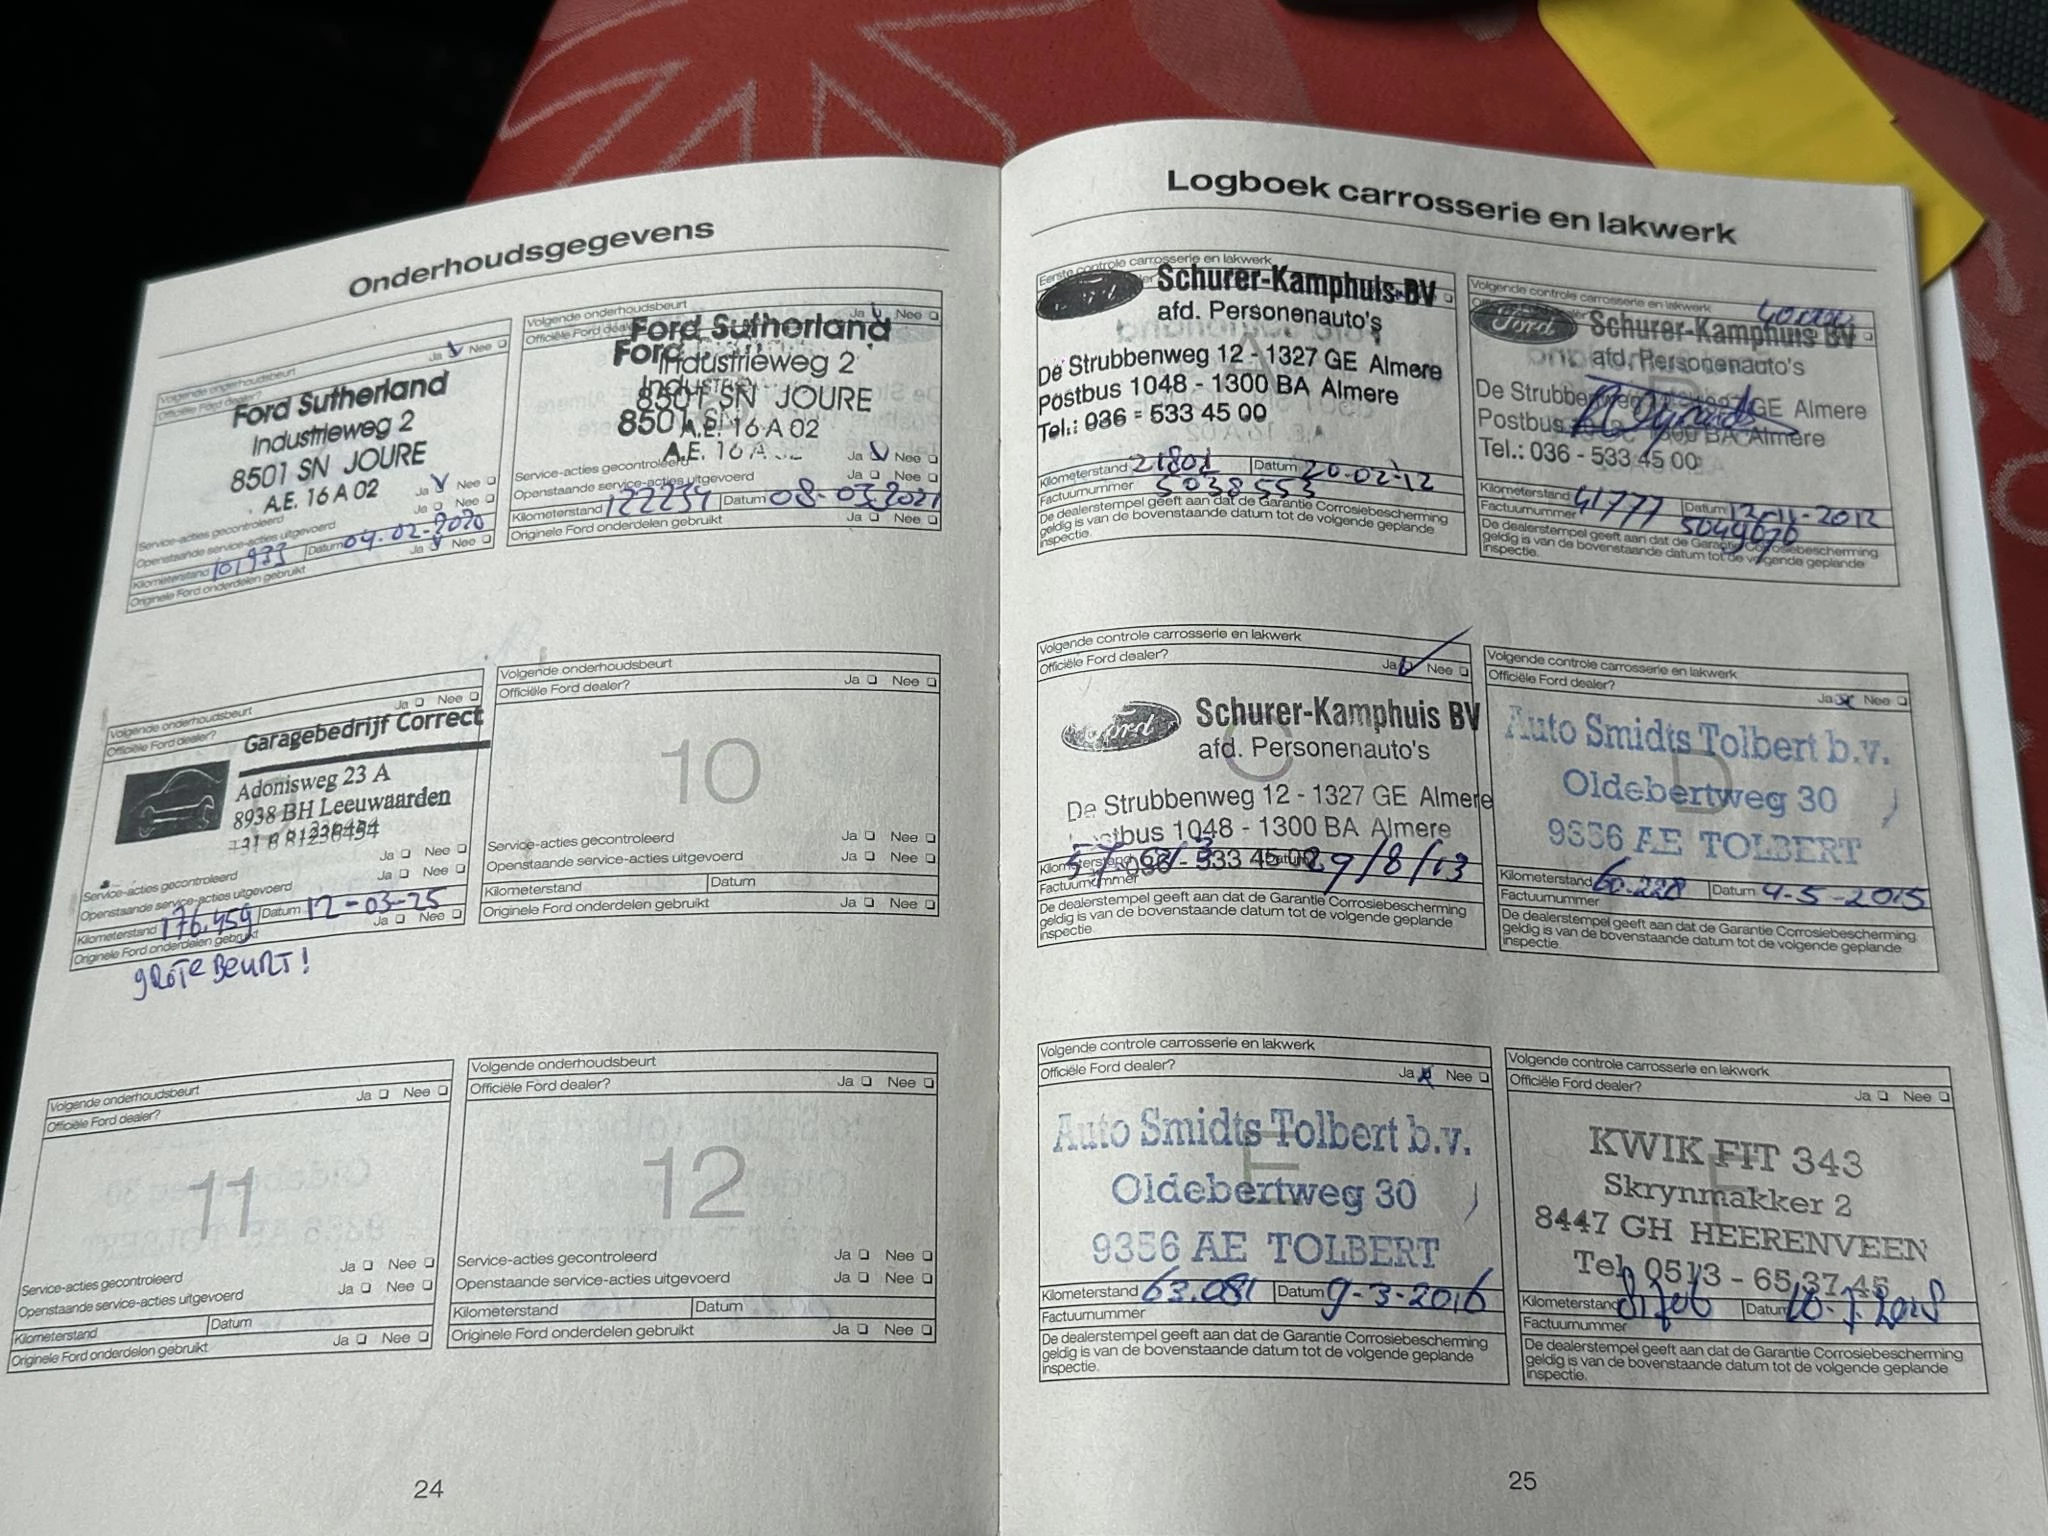 Onderhoudsgegevens
Volgende onderhoudsbeurt
Officiële Ford dealer? Ja Nee
Ford Sutherland
Industrieweg 2
8501 SN JOURE
A.E. 16 A 02
Service-acties gecontroleerd Ja Nee
Openstaande service-acties uitgevoerd Ja Nee
Kilometerstand Datum 04-02-2020
Originele Ford onderdelen gebruikt Ja Nee
Volgende onderhoudsbeurt
Officiële Ford dealer? Ja Nee
Ford Sutherland
Industrieweg 2
8501 SN JOURE
A.E. 16 A 02
Service-acties gecontroleerd Ja Nee
Openstaande service-acties uitgevoerd Ja Nee
Kilometerstand 122234 Datum 08-03-2021
Originele Ford onderdelen gebruikt Ja Nee
Volgende onderhoudsbeurt
Officiële Ford dealer? Ja Nee
Garagebedrijf Correct
Adonisweg 23 A
8938 BH Leeuwaarden
Service-acties gecontroleerd Ja Nee
Openstaande service-acties uitgevoerd Ja Nee
Kilometerstand 176.459 Datum 12-03-25
Originele Ford onderdelen gebruikt Ja Nee
gROTe BeURT!
Volgende onderhoudsbeurt
Officiële Ford dealer? Ja Nee
10
Service-acties gecontroleerd Ja Nee
Openstaande service-acties uitgevoerd Ja Nee
Kilometerstand Datum
Originele Ford onderdelen gebruikt Ja Nee
Volgende onderhoudsbeurt
Officiële Ford dealer? Ja Nee
11
Service-acties gecontroleerd Ja Nee
Openstaande service-acties uitgevoerd Ja Nee
Kilometerstand Datum
Originele Ford onderdelen gebruikt Ja Nee
Volgende onderhoudsbeurt
Officiële Ford dealer? Ja Nee
12
Service-acties gecontroleerd Ja Nee
Openstaande service-acties uitgevoerd Ja Nee
Kilometerstand Datum
Originele Ford onderdelen gebruikt Ja Nee
24
Logboek carrosserie en lakwerk
Eerste controle carrosserie en lakwerk
Ford Schurer-Kamphuis BV
afd. Personenauto's
De Strubbenweg 12 - 1327 GE Almere
Postbus 1048 - 1300 BA Almere
Tel.: 036 - 533 45 00
Kilometerstand 21801 Datum 20-02-12
Factuurnummer 5038553
De dealerstempel geeft aan dat de Garantie Corrosiebescherming
geldig is van de bovenstaande datum tot de volgende geplande
inspectie.
Volgende controle carrosserie en lakwerk 40.000
Ford Schurer-Kamphuis BV
afd. Personenauto's
De Strubbenweg GE Almere
Postbus 1300 BA Almere
Tel.: 036 - 533 45 00
Kilometerstand 41777 Datum 12-11-2012
Factuurnummer 5049676
De dealerstempel geeft aan dat de Garantie Corrosiebescherming
geldig is van de bovenstaande datum tot de volgende geplande
inspectie.
Volgende controle carrosserie en lakwerk
Officiële Ford dealer? Ja Nee
C
Ford Schurer-Kamphuis BV
afd. Personenauto's
De Strubbenweg 12 - 1327 GE Almere
Postbus 1048 - 1300 BA Almere
036 - 533 45 00
Kilometerstand Datum 29/8/13
Factuurnummer
De dealerstempel geeft aan dat de Garantie Corrosiebescherming
geldig is van de bovenstaande datum tot de volgende geplande
inspectie.
Volgende controle carrosserie en lakwerk
Officiële Ford dealer? Ja Nee
D
Auto Smidts Tolbert b.v.
Oldebertweg 30
9356 AE TOLBERT
Kilometerstand 60.228 Datum 4-5-2015
Factuurnummer
De dealerstempel geeft aan dat de Garantie Corrosiebescherming
geldig is van de bovenstaande datum tot de volgende geplande
inspectie.
Volgende controle carrosserie en lakwerk
Officiële Ford dealer? Ja Nee
E
Auto Smidts Tolbert b.v.
Oldebertweg 30
9356 AE TOLBERT
Kilometerstand 63.081 Datum 9-3-2016
Factuurnummer
De dealerstempel geeft aan dat de Garantie Corrosiebescherming
geldig is van de bovenstaande datum tot de volgende geplande
inspectie.
Volgende controle carrosserie en lakwerk
Officiële Ford dealer? Ja Nee
F
KWIK FIT 343
Skrynmakker 2
8447 GH HEERENVEEN
Tel. 0513 - 65.37.45
Kilometerstand Datum
Factuurnummer
De dealerstempel geeft aan dat de Garantie Corrosiebescherming
geldig is van de bovenstaande datum tot de volgende geplande
inspectie.
25